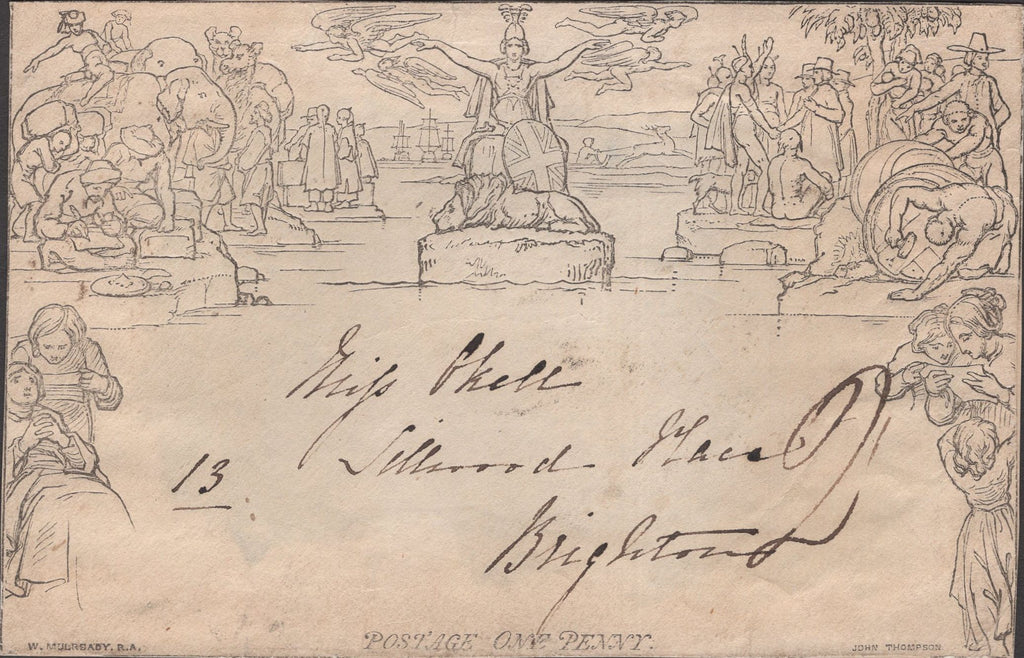 Miss
13 Sillwood Place
Brighton
POSTAGE ONE PENNY.
W. MULREADY, R.A.
JOHN THOMPSON